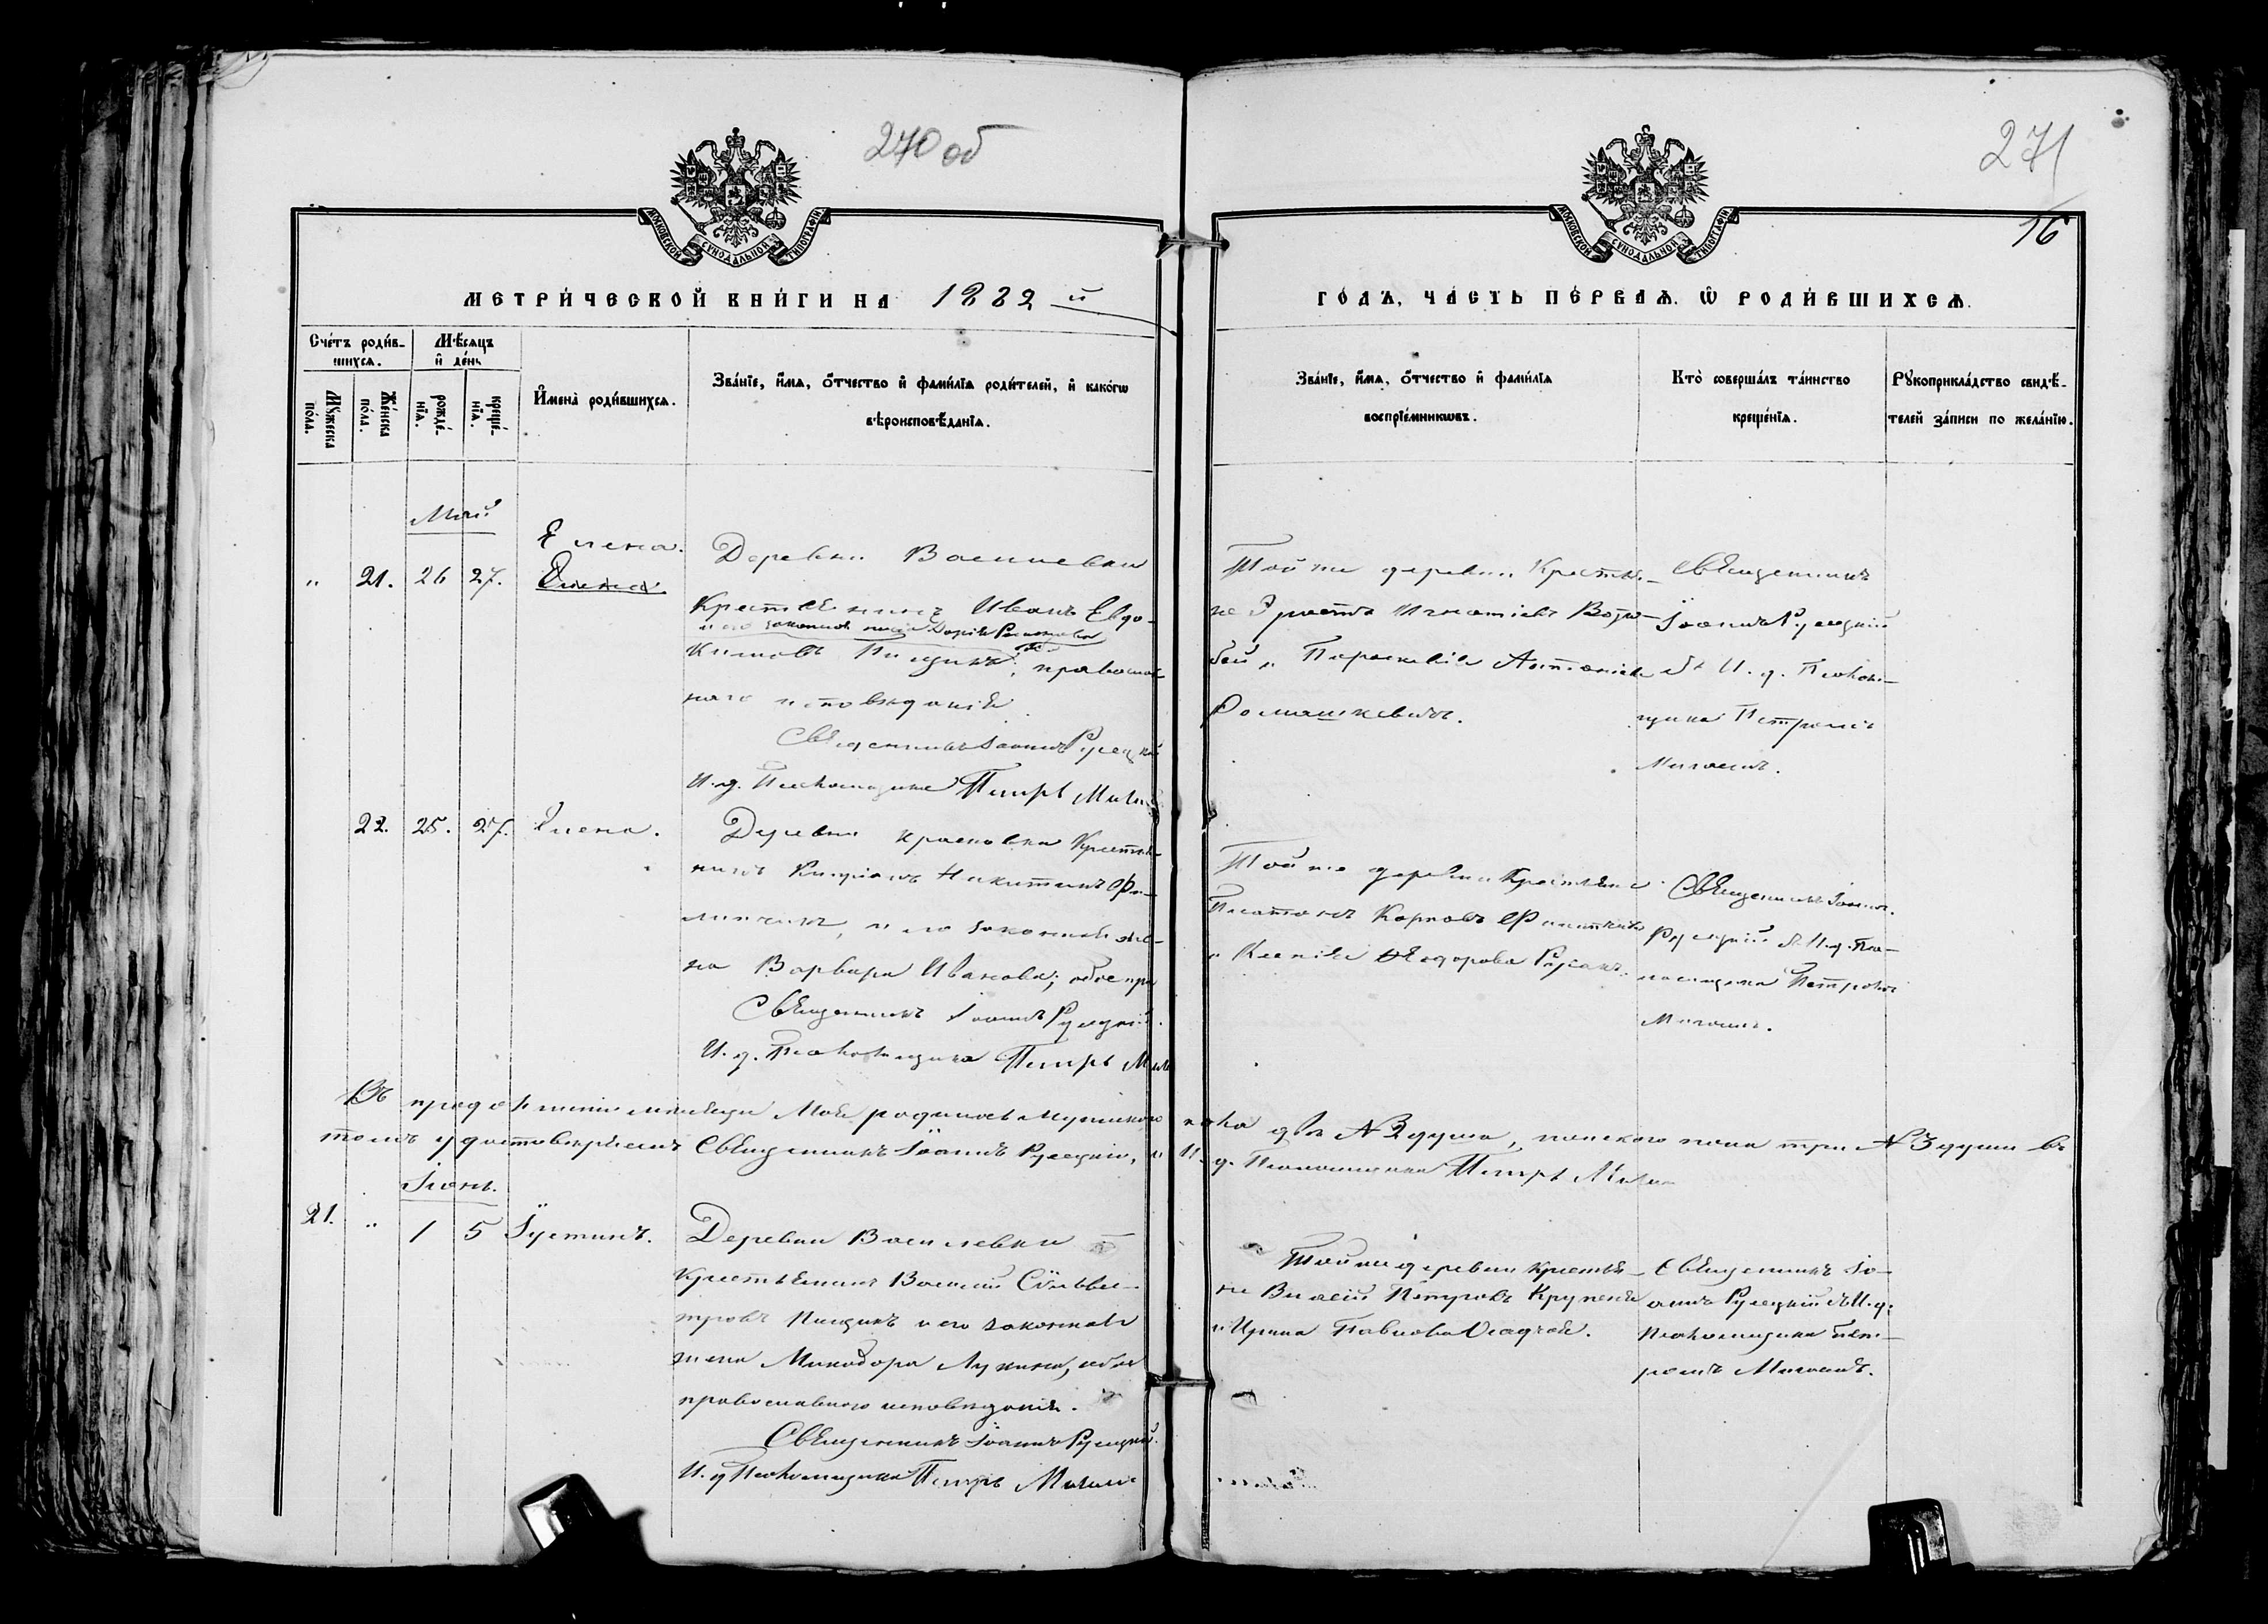 270 об
271
16
МОСКОВСКОЙ СѴНОДАЛЬНОЙ ТИПОГРАФІИ
МОСКОВСКОЙ СѴНОДАЛЬНОЙ ТИПОГРАФІИ
МЕТРИ́ЧЕСКОЙ КНИ́ГИ НА 1882 й
ГО́ДЪ, ЧА́СТЬ ПЕ́РВАѦ. Ѽ РОДИ́ВШИХСѦ.
Сче́тъ роди́в-
шихсѧ.
Мѣ́сяцъ
и҆ де́нь
Мꙋ́жеска по́ла.
Же́нска по́ла.
рожде́-нїѧ.
креще́-нїѧ.
И҆мена̀ роди́вшихсѧ.
Зва́нїе, и҆́мѧ, ѻ҆́тчество и҆ фами́лїѧ роди́телей, и҆ како́гѡ
вѣроисповѣ́данїѧ.
Зва́нїе, и҆́мѧ, ѻ҆́тчество и҆ фами́лїѧ
воспрїе́мникѡвъ.
Кто̀ соверша́лъ та́инство
креще́нїѧ.
Рꙋкоприкла́дство свидѣ́-
телей за́писи по жела́нїю.
Май
Елена.
" 21. 26 27. Елена.
Деревни Васильевки
Крестьянинъ Иванъ Евдо-
и его законная жена Дарія
кимовъ Пищикъ; православ-
наго исповѣданія
Священникъ Іоаннъ Рулецкій
И. д. Псаломщика Петръ
Той же деревни Крестья-
не Игнатіевъ
и Параскевія Антоніева
Ромашкевичъ.
Священникъ
Іоаннъ Рулецкій
съ И. д. Псалом-
щика Петромъ
22. 25. 27. Елена.
Деревни Красновки Крестья-
нинъ Никитинъ Фи-
липчикъ, и его законная же-
на Варвара Иванова; обое пра
Священникъ Іоаннъ Рулецкій.
И. д. Псаломщика Петръ
Той же деревни Крестьяне
Платонъ Карповъ Филипчикъ
и Ксенія Ѳеодорова
Священникъ Іоаннъ
Рулецкій съ И. д. Пса-
ломщика Петромъ
Въ продолженіи мѣсяца Мая родилось мужескаго пола два № 2 души, женскаго пола три № 3 души въ
томъ удостовѣряемъ Священникъ Іоаннъ Рулецкій, и И. д. Псаломщика Петръ
Іюнь.
21. " 1 5 Іустинъ.
Деревни Василевки
Крестьянинъ Василій Сильве-
стровъ Пищикъ и его законная
жена Минодора Лукина, обое
православнаго исповѣданія.
Священникъ Іоаннъ Рулецкій.
И. д. Псаломщика Петръ
Той же деревни Крестья-
не Василій Петровъ
и Ирина Павлова Осадчая.
Священникъ Іо-
аннъ Рулецкій съ И. д.
Псаломщика Пет-
ромъ